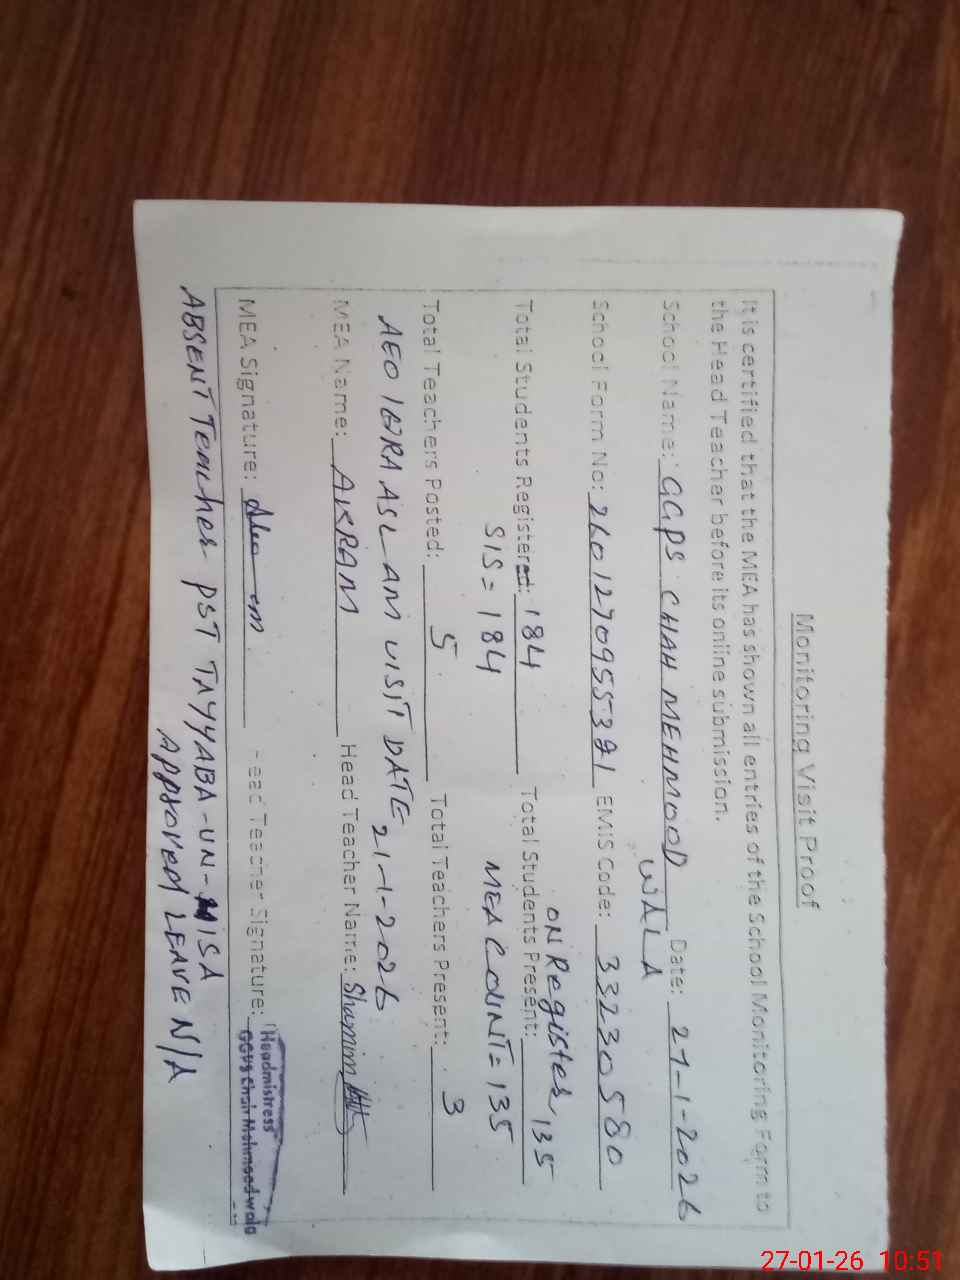 Monitoring Visit Proof
It is certified that the MEA has shown all entries of the School Monitoring Form to
the Head Teacher before its online submission.
School Name: GGPS CHAH MEHMOOD WALA Date: 27-1-2026
School Form No: EMIS Code: 33230580
Total Students Registered: 184 Total Students Present: ON Register, 135
SIS = 184 MEA COUNT = 135
Total Teachers Posted: 5 Total Teachers Present: 3
AEO IQRA ASLAM VISIT DATE 21-1-2026
MEA Name: AKRAM Head Teacher Name: Shamim
MEA Signature: Head Teacher Signature:
Headmistress
GGPS Chah Mehmood wala
ABSENT Teacher PST TAYYABA-UN-NISA
Approved LEAVE N/A
27-01-26 10:51